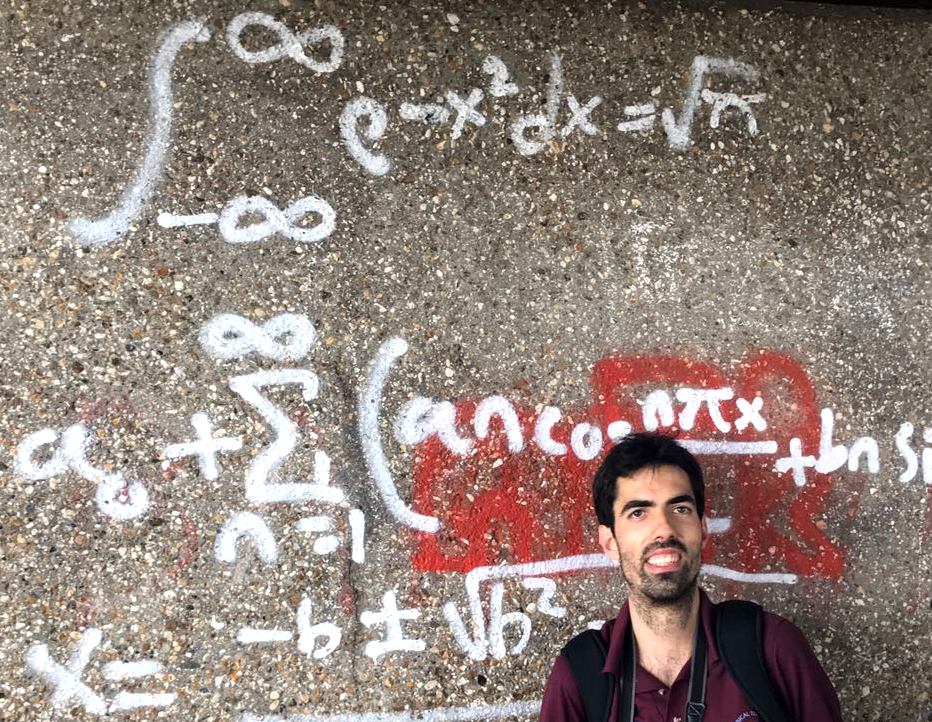 ∫_{-∞}^{∞} e^{-x²} dx = √π
a₀ + ∑_{n=1}^{∞} (an co nπx + bn si
x = -b ± √b²